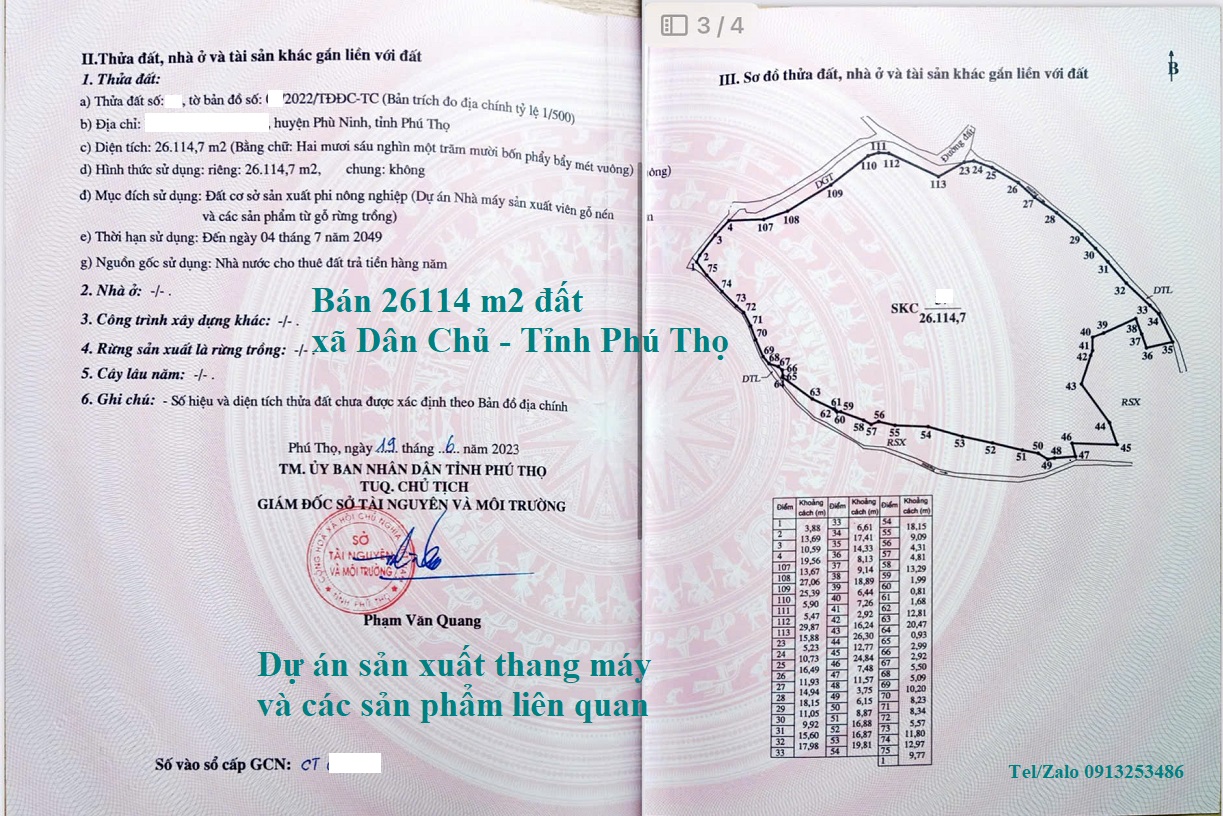 II.Thửa đất, nhà ở và tài sản khác gắn liền với đất
1. Thửa đất:
a) Thửa đất số: , tờ bản đồ số: /2022/TĐĐC-TC (Bản trích đo địa chính tỷ lệ 1/500)
b) Địa chỉ: , huyện Phù Ninh, tỉnh Phú Thọ
c) Diện tích: 26.114,7 m2 (Bằng chữ: Hai mươi sáu nghìn một trăm mười bốn phẩy bẩy mét vuông)
d) Hình thức sử dụng: riêng: 26.114,7 m2, chung: không
đ) Mục đích sử dụng: Đất cơ sở sản xuất phi nông nghiệp (Dự án Nhà máy sản xuất viên gỗ nén
và các sản phẩm từ gỗ rừng trồng)
e) Thời hạn sử dụng: Đến ngày 04 tháng 7 năm 2049
g) Nguồn gốc sử dụng: Nhà nước cho thuê đất trả tiền hàng năm
2. Nhà ở: -/- .
3. Công trình xây dựng khác: -/- .
4. Rừng sản xuất là rừng trồng: -/- .
5. Cây lâu năm: -/- .
6. Ghi chú: - Số hiệu và diện tích thửa đất chưa được xác định theo Bản đồ địa chính
Bán 26114 m2 đất
xã Dân Chủ - Tỉnh Phú Thọ
Phú Thọ, ngày 19 tháng ..6.. năm 2023
TM. ỦY BAN NHÂN DÂN TỈNH PHÚ THỌ
TUQ. CHỦ TỊCH
GIÁM ĐỐC SỞ TÀI NGUYÊN VÀ MÔI TRƯỜNG
SỞ
TÀI NGUYÊN
VÀ MÔI TRƯỜNG
TỈNH PHÚ THỌ
Phạm Văn Quang
Dự án sản xuất thang máy
và các sản phẩm liên quan
Số vào sổ cấp GCN: CT
3 / 4
III. Sơ đồ thửa đất, nhà ở và tài sản khác gắn liền với đất
B
ông)
n
Đường đất
DGT
111
110 112
109
113
23 24
25
26
27
28
29
30
31
32
DTL
33
34
35
36
37
38
39
40
41
42
43
44
45
46
47
48
49
50
51
52
53
54
55
56
57
58
59
60
61
62
63
64
65
66
67
68
69
70
71
72
73
74
75
1
2
3
4
107
108
DTL
RSX
RSX
SKC
26.114,7
Điểm Khoảng cách (m) Điểm Khoảng cách (m) Điểm Khoảng cách (m)
1 33 54
3,88 6,61 18,15
2 34 55
13,69 17,41 9,09
3 35 56
10,59 14,33 4,31
4 36 57
19,56 8,13 4,81
107 37 58
13,67 9,14 13,29
108 38 59
27,06 18,89 1,99
109 39 60
25,39 6,44 0,81
110 40 61
5,90 7,26 1,68
111 41 62
5,47 2,92 12,81
112 42 63
29,87 16,24 20,47
113 43 64
15,88 26,30 0,93
23 44 65
5,23 12,77 2,99
24 45 66
10,73 24,84 2,92
25 46 67
16,49 7,48 5,50
26 47 68
11,93 11,57 5,09
27 48 69
14,94 3,75 10,20
28 49 70
18,15 6,15 8,23
29 50 71
11,05 8,87 8,34
30 51 72
9,92 16,88 5,57
31 52 73
15,60 16,87 11,80
32 53 74
17,98 19,81 12,97
33 54 75
9,77
1
Tel/Zalo 0913253486